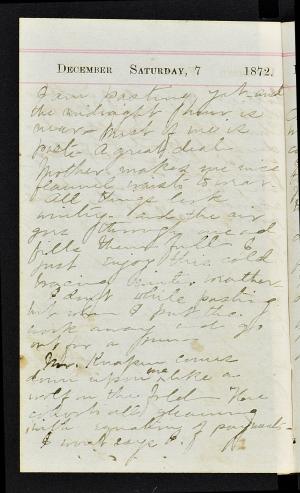 December Saturday, 7 1872.
I am pasting yet and
the midnight hour is
near. Most of me is
paste. A great deal
Mother makes me nice
flannel waists to wear.
All things look
wintry and the air
goes through me and
fills them full to
just enjoy this cold
bracing winter weather
I don't while pasting
but when I put the
work away and go
out for a
Mr. Knapin comes
down upon me like a
wolf in the fold. His
all gleaming
with of
I won't says I.